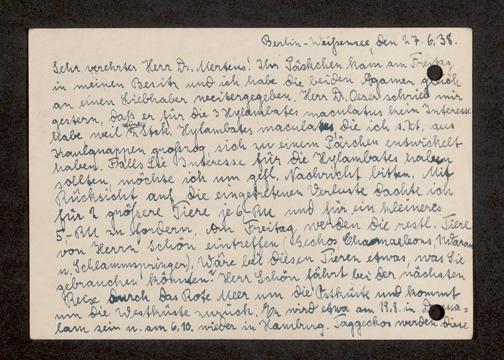 Berlin-Weißensee, den 27.6.38.
Sehr verehrter Herr Dr. Mertens! Ihr Päckchen kam am Freitag
in meinen Besitz und ich habe die beiden Agamen gleich
an einen Liebhaber weitergegeben. Herr Dr. Oeser schrieb mir
gestern, daß er für die 3 Hylambates maculatus kein Interesse
habe weil Stck. Hylambates maculatus die ich s.Zt. aus
Kaulquappen großzog sich zu einem Pärchen entwickelt
haben. Falls Sie Interesse für die Hylambates haben
sollten, möchte ich um gefl. Nachricht bitten. Mit
Rücksicht auf die eingetretenen Verluste dachte ich
für 2 größere Tiere je 6.-RM und für ein kleineres
5,-RM zu fordern. Am Freitag werden die restl. Tiere
von Herrn Schön eintreffen (Geckos, Chamaeleons, Waran
u. Schlammspringer). Wäre bei diesen Tieren etwas, was Sie
gebrauchen könnten? Herr Schön fährt bei der nächsten
Reise durch das Rote Meer um die Ostküste und kommt
um die Westküste zurück. Er wird etwa am 19.8. in Daressa-
lam sein u. am 6.10. wieder in Hamburg. Taggeckos werden diese